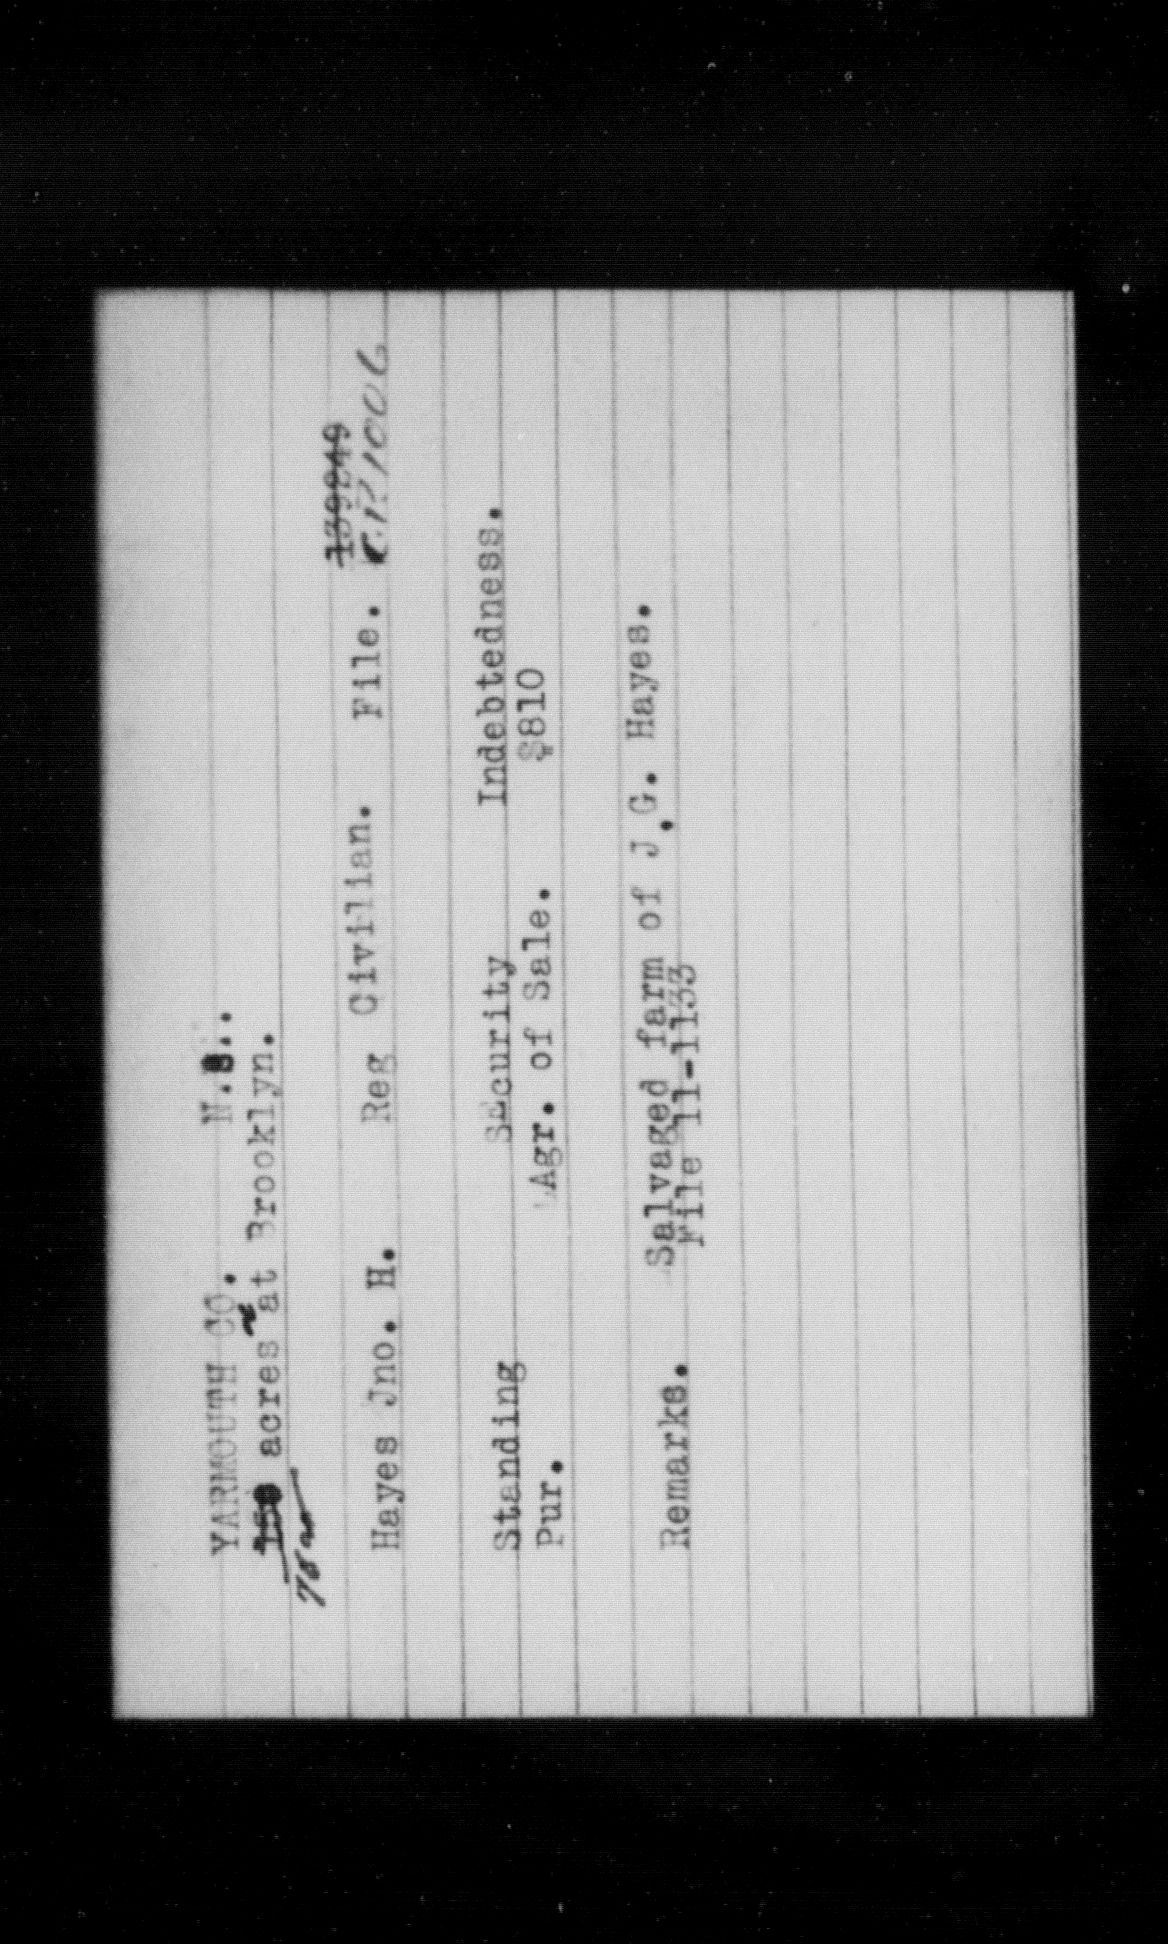 YARMOUTH CO. N.S..
150 acres at Brooklyn.
75
139249
Hayes Jno. H. Reg Civilian. File. C.P.1006
Standing Security Indebtedness.
Pur. Agr. of Sale. $810
Remarks. Salvaged farm of J.G. Hayes.
File 11-1133